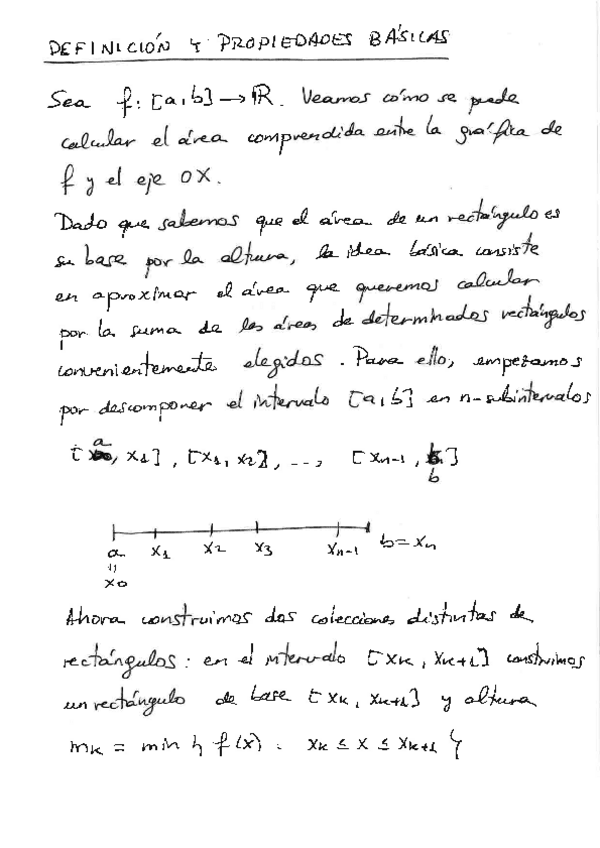 DEFINICIÓN Y PROPIEDADES BÁSICAS
Sea f: [a,b] → ℝ. Veamos cómo se puede
calcular el área comprendida entre la gráfica de
f y el eje OX.
Dado que sabemos que el área de un rectángulo es
su base por la altura, la idea básica consiste
en aproximar el área que queremos calcular
por la suma de las áreas de determinados rectángulos
convenientemente elegidos. Para ello, empezamos
por descomponer el intervalo [a,b] en n-subintervalos
[a, x1], [x1, x2], ..., [xn-1, b]
a x1 x2 x3 xn-1 b=xn
=
x0
Ahora construimos dos colecciones distintas de
rectángulos: en el intervalo [xk, xk+1] construimos
un rectángulo de base [xk, xk+1] y altura
mk = min { f(x) : xk ≤ x ≤ xk+1 }